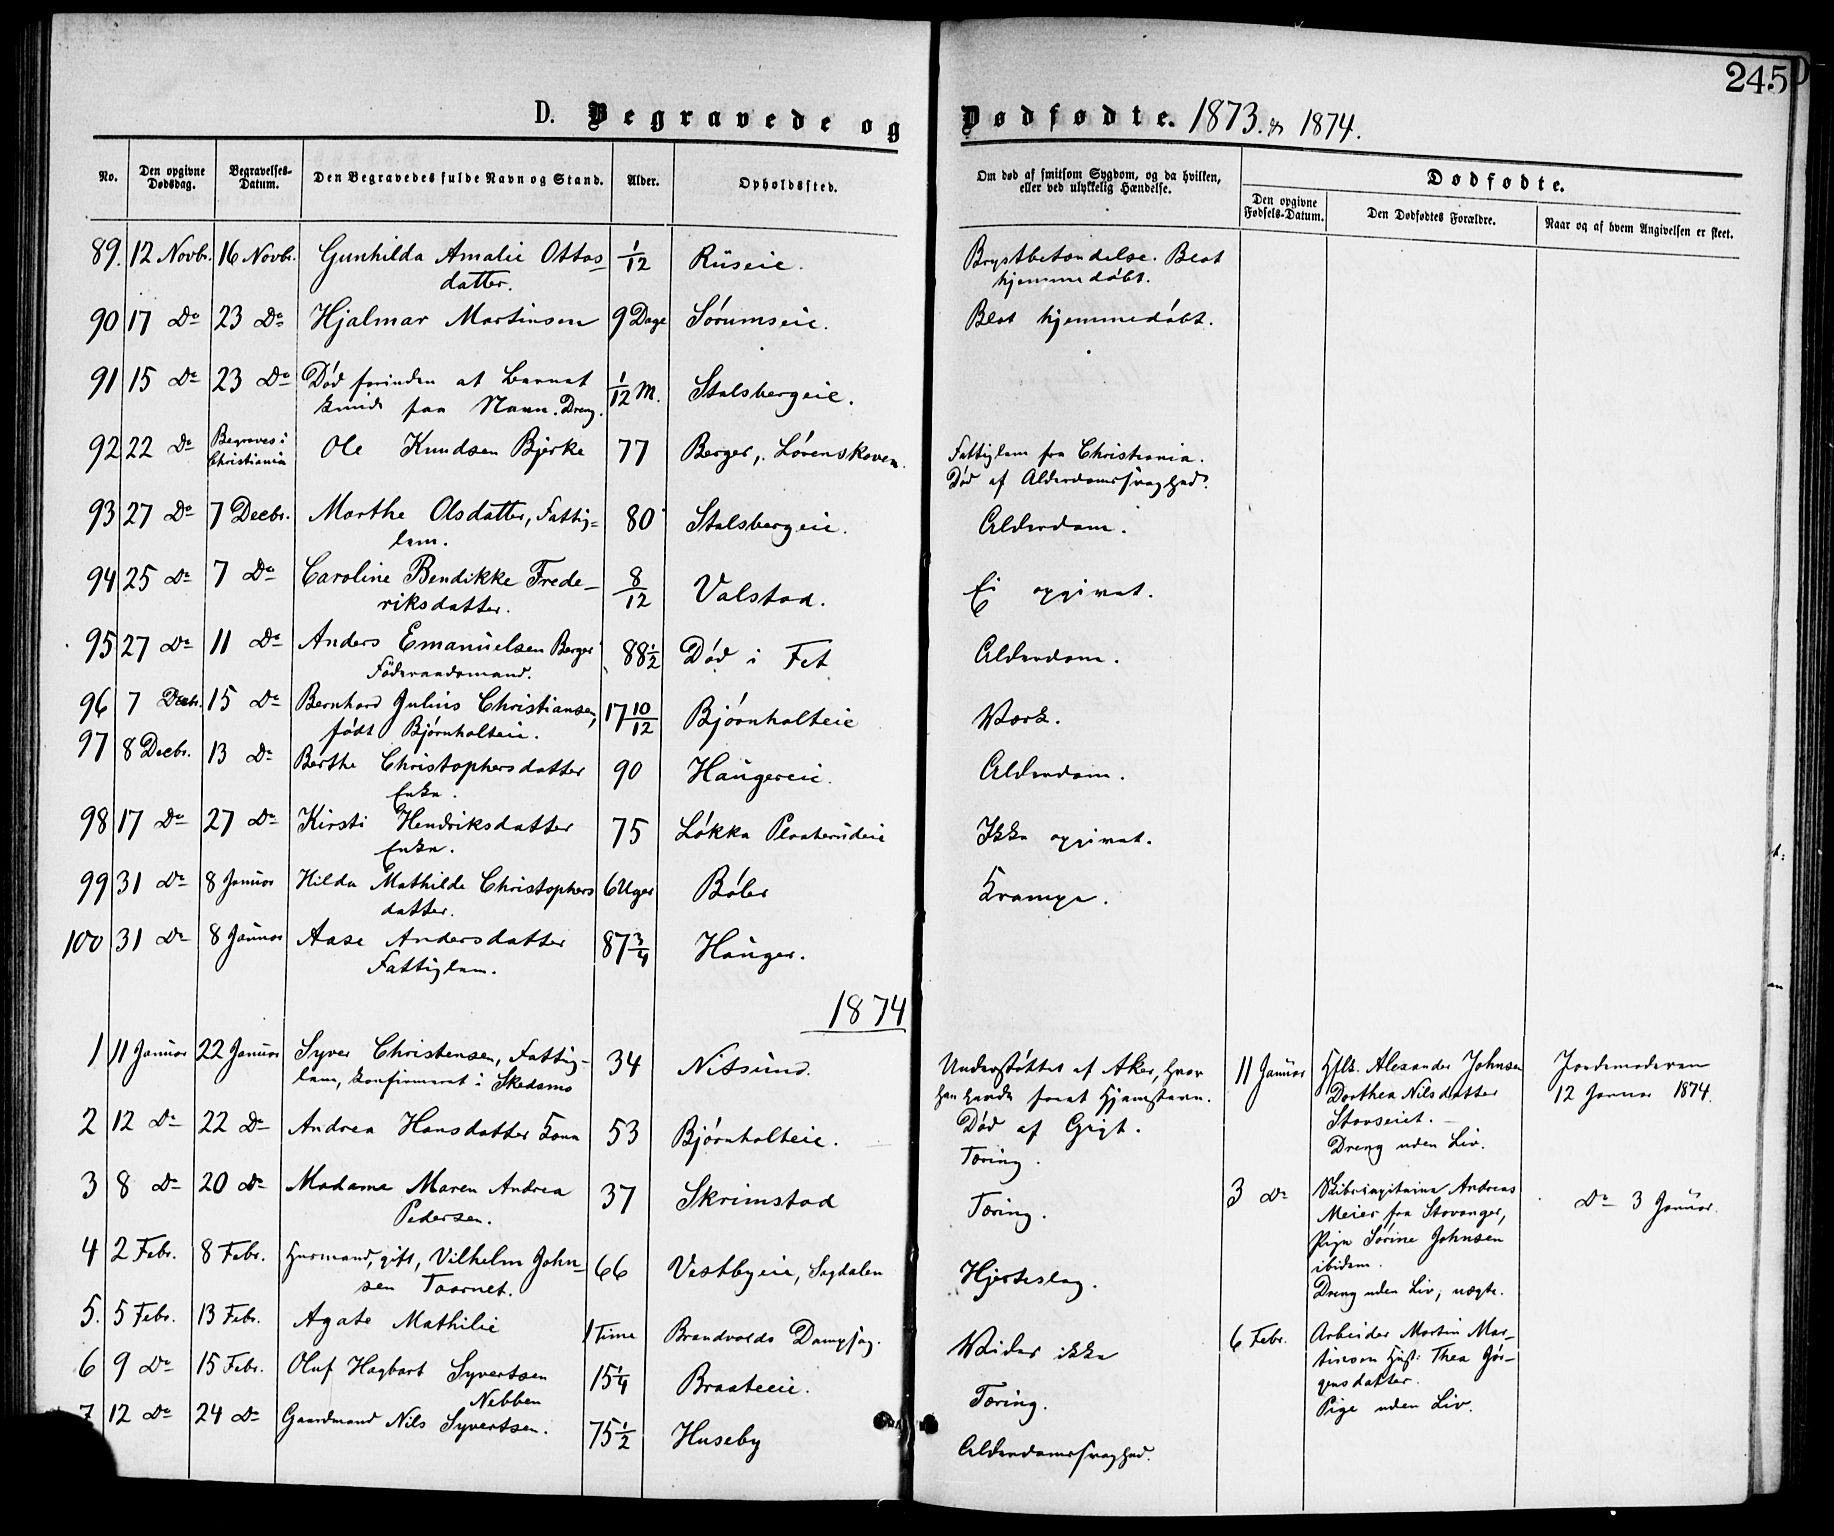 245
D. Begravede og Dødfødte. 1873 & 1874.
No. Den opgivne Dødsdag. Begravelses-Datum. Den Begravedes fulde Navn og Stand. Alder. Opholdssted. Om død af smitsom Sygdom, og da hvilken, eller ved ulykkelig Hændelse. Dødfødte.
Den opgivne Fødsels-Datum. Den Dødfødtes Forældre. Naar og af hvem Angivelsen er skeet.
89. 12 Novbr. 16 Novbr. Gunhilda Amalie Ottos- 1/12 Rüseie. Brystbetændelse. Blot
datter. hjemmedøbt.
90 17 Do 23 Do Hjalmar Martinsen 9 Dage Sørumseie. Blot hjemmedøbt.
91 15 Do 23 Do Død forinden at Barnet 1/12 M. Stalsbergeie.
kunde faa Navn. Dreng.
92 22 Do Begraves i Christiania Ole Knudsen Bjerke 77 Berger, Lørenskoven. Fattiglem fra Christiania.
Død af Alderdomssvaghed.
93 27 Do 7 Decbr. Marthe Olsdatter, Fattig- 80 Stalsbergeie. Alderdom.
lem.
94 25 Do 7 Do Caroline Bendikke Frede- 8/12 Valstad. Ei opgivet.
riksdatter.
95 27 Do 11 Do Anders Emanuelsen Berger 88 1/2 Død i Fet Alderdom.
Föderaadsmand.
96 7 Decbr. 15 Do Bernhard Julius Christiansen, 17 10/12 Bjørnholteie Værk.
født Bjørnholteie.
97 8 Decbr. 13 Do Berthe Christophersdatter 90 Haugereie. Alderdom.
Enke.
98 17 Do 27 Do Kirsti Hendriksdatter 75 Løkka Plaaterudeie Ikke opgivet.
Enke.
99 31 Do 8 Januar Hilda Mathilde Christophers 6 Uger Bøler Krampe.
datter.
100 31 Do 8 Januar Aase Andersdatter 87 3/4 Hauger.
Fattiglem.
1874
1 11 Januar 22 Januar Syver Christensen, Fattig- 34 Nitsund. Understøttet af Aker, hvor 11 Januar Gftk. Alexander Johnsen Jordemoderen
lem, konfirmeret i Skedsmo han havde faaet Hjemstavn. Dorthea Nilsdatter 12 Januar 1874.
2 12 Do 22 Do Andrea Hansdatter Kone 53 Bjørnholteie. Død af Gigt. Stovseiet.
Tæring. Dreng uden Liv.
3 8 Do 20 Do Madame Maren Andrea 37 Skrimstad Tæring. 3 Do Skibscapitaine Andreas Do 3 Januar.
Pedersen. Meier fra Stavanger,
Pige Sørine Johnsen
ibidem.
Dreng uden Liv, uægte.
4 2 Febr. 8 Febr. Husmand, gift, Vilhelm John- 66 Vestbyeie, Sagdalen Hjerteslag.
sen Taarnet.
5. 5 Febr. 13 Febr. Agate Mathilie 1 Time Brandvolds Dampsag. Veides ikke 6 Febr. Arbeider Martin Mar-
tinsen Hust: Thea Jør-
gensdatter.
Pige uden Liv.
6 9 Do 15 Febr. Oluf Hagbart Syvertsen 15 1/4 Braateeie. Tæring.
Nebben
7 12 Do 24 Do Gaardmand Nils Syvertsen. 75 1/2 Huseby Alderdomssvaghed.